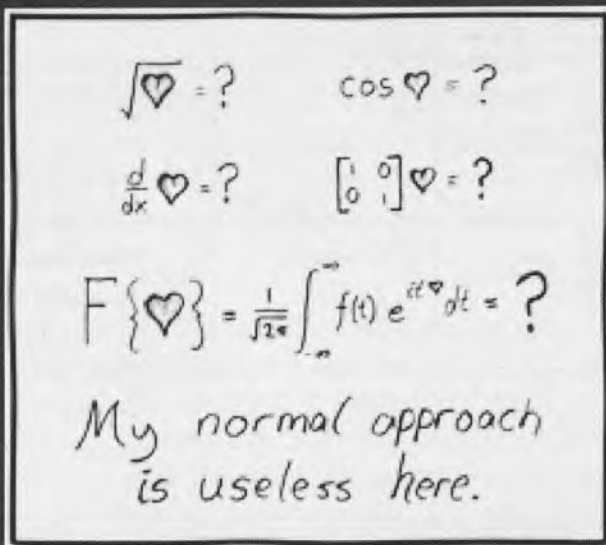 √♡ = ? cos ♡ = ?
d/dx ♡ = ? [1 0; 0 1] ♡ = ?
F{♡} = 1/√2π ∫_{-∞}^{∞} f(t) e^{it♡} dt = ?
My normal approach
is useless here.